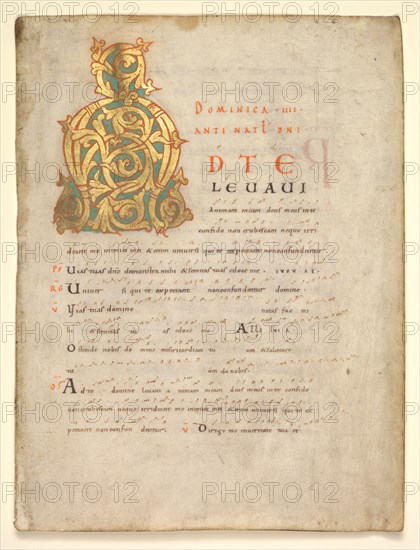 DOMINICA IIII
ANTE NAT DNI
D TE
LEUAUI
Animam meam deus meus in te
confido non erubescam neque irri
deant me inimici mei & enim uniuersi qui te expectant non confundentur
Uias tuas dne demonstra mihi & semitas tuas edoce me
Uniuer si qui te expectant non confundentur domine
Vias tuas domine notas fac mi
hi & semitas tu as edoce me Alleluia
Ostende nobis domine misericordiam tu am & salutare
tu um da nobis
Ad te domine leuaui animam meam deus meus in te confido
non erubescam neque irrideant me inimici mei & enim uniuersi qui te ex
pectant non confun dentur Dirige me in ueritate tua et